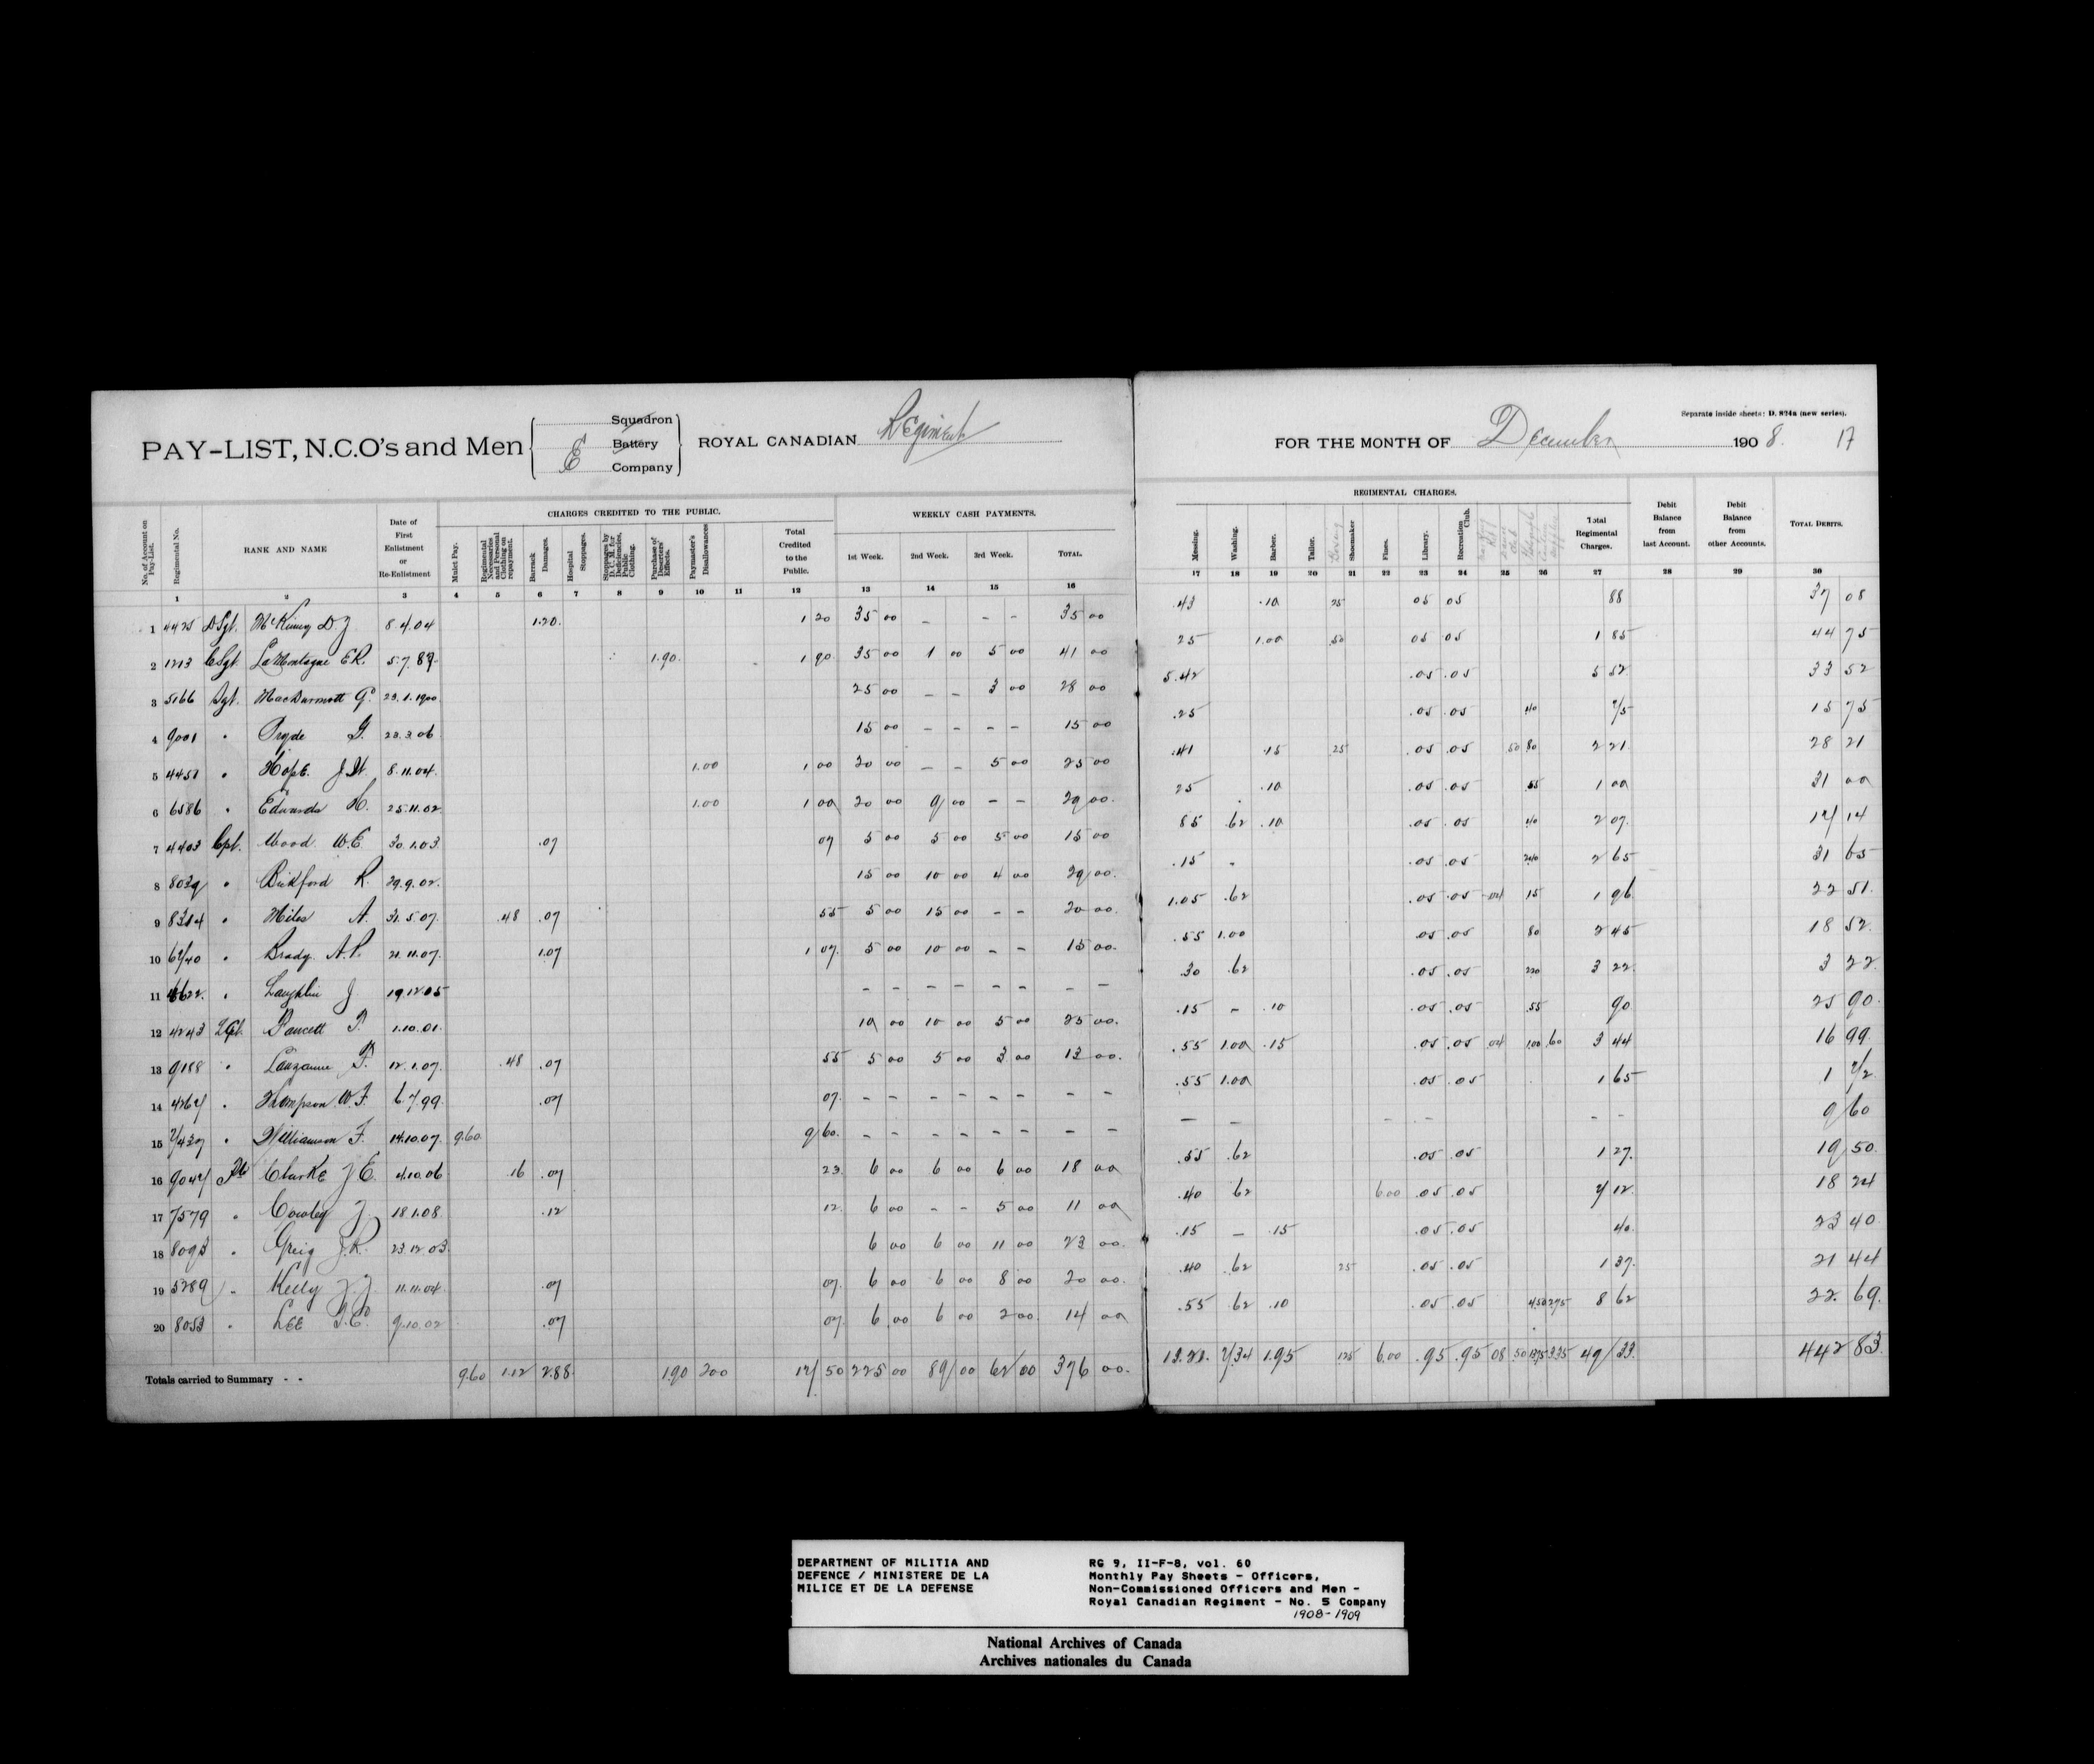 Separate inside sheets: D. 824a (new series).
PAY-LIST, N.C.O's and Men
Squadron
Battery
E Company
ROYAL CANADIAN Regiment
FOR THE MONTH OF December 1908. 17
CHARGES CREDITED TO THE PUBLIC. WEEKLY CASH PAYMENTS. REGIMENTAL CHARGES.
No. of Account on Pay-List. Regimental No. RANK AND NAME Date of First Enlistment or Re-Enlistment Mulct Pay. Regimental Necessaries and Personal Clothing on repayment. Barrack Damages. Hospital Stoppages. Stoppages by D. C. M. for Deficiencies, Public Clothing. Purchase of Deserters' Effects. Paymaster's Disallowances Total Credited to the Public. 1st Week. 2nd Week. 3rd Week. TOTAL. Messing. Washing. Barber. Tailor. Shoemaker Fines. Library. Recreation Club. Total Regimental Charges. Debit Balance from last Account. Debit Balance from other Accounts. TOTAL DEBITS.
1 2 3 4 5 6 7 8 9 10 11 12 13 14 15 16 17 18 19 20 21 22 23 24 25 26 27 28 29 30
1 4425 McKinney D J 8.4.04 1.20. 1 20 35 00 - - - 35 00 .43 .10 25 05 05 88 37 08
2 1213 CSgt. LaMontagne E.R. 5.7.89. 1.90. 1 90 35 00 1 00 5 00 41 00 25 1.00 .50 05 .05 1 85 44 75
3 5166 Sgt. MacDurmott G. 23.1.1900 25 00 - - 3 00 28 00 5.42 .05 .05 5 52 33 52
4 9001 " Pryde G. 23.3.06 15 00 - - - - 15 00 .25 .05 .05 .40 75 15 75
5 4451 " Hope. J.W. 8.11.04. 1.00 1 00 20 00 - - 5 00 25 00 .41 .15 25 .05 .05 50 80 2 21 28 21
6 6586 " Edwards H. 25.11.02. 1.00 1 00 20 00 9 00 - - 29 00. 25 .10 .05 .05 .55 1 00 31 00
7 4403 Cpl. Wood W.E 30.1.03 .07 07 5 00 5 00 5 00 15 00 85 .62 .10 .05 .05 .40 2 07. 17 14
8 8039 " Bickford R. 29.9.02. 15 00 10 00 4 00 29 00. .15 - .05 .05 2.40 2 65 31 65
9 8314 " Miles A. 31.5.07. .48 .07 55 5 00 15 00 - - 20 00. 1.05 .62 .05 .05 .04 15 1 96 22 51.
10 6740 " Brady. A.P. 21.11.07. 1.07 1 07. 5 00 10 00 - - 15 00. .55 1.00 .05 .05 80 2 45 18 52.
11 4622. " Laughlin J 19.12.05 - - - - - - - - .30 .62 .05 .05 2.20 3 22 3 22
12 4243 LCpl. Faucett P. 1.10.01. 10 00 10 00 5 00 25 00. .15 - .10 .05 .05 .55 90 25 90.
13 9188 " Lauzanne F. 12.1.07. .48 .07 55 5 00 5 00 3 00 13 00. .55 1.00 .15 .05 .05 .04 1.00 .60 3 44 16 99.
14 4267 " Thompson W.F. 6.7.99. .07 07. - - - - - - - - .55 1.00 .05 .05 1 65 1 72
15 7427 " Williamson F. 14.10.07. 9.60. 9 60. - - - - - - - - - - - - - - 9 60
16 9047 Pte Clarke J E. 4.10.06 .16 .07 23. 6 00 6 00 6 00 18 00 .55 .62 .05 .05 1 27. 19 50.
17 7579 " Cowley J. 18.1.08. .12 12. 6 00 - - 5 00 11 00 .40 62 6.00 .05 .05 7 12. 18 24
18 8093 " Greig J.R. 23.12.03. 6 00 6 00 11 00 23 00. .15 - .15 .05 .05 40. 23 40
19 5289 " Kelly J.J. 11.11.04. .07 07. 6 00 6 00 8 00 20 00. .40 .62 25 .05 .05 1 37. 21 44
20 8053 " LEE 9.10.02 .07 07. 6 00 6 00 2 00 14 00 .55 .62 .10 .05 .05 4.50 2.75 8 62 22. 69.
Totals carried to Summary - - 9.60 1.12 2.88. 1.90 2.00 17 50 225 00 89 00 62 00 376 00. 13.21. 7.34 1.95 1.25 6.00 .95 .95 08 .50 13.75 3.35 49 33. 442 83.
DEPARTMENT OF MILITIA AND
DEFENCE / MINISTERE DE LA
MILICE ET DE LA DEFENSE
RG 9, II-F-8, vol. 60
Monthly Pay Sheets - Officers,
Non-Commissioned Officers and Men -
Royal Canadian Regiment - No. 5 Company
1908-1909
National Archives of Canada
Archives nationales du Canada